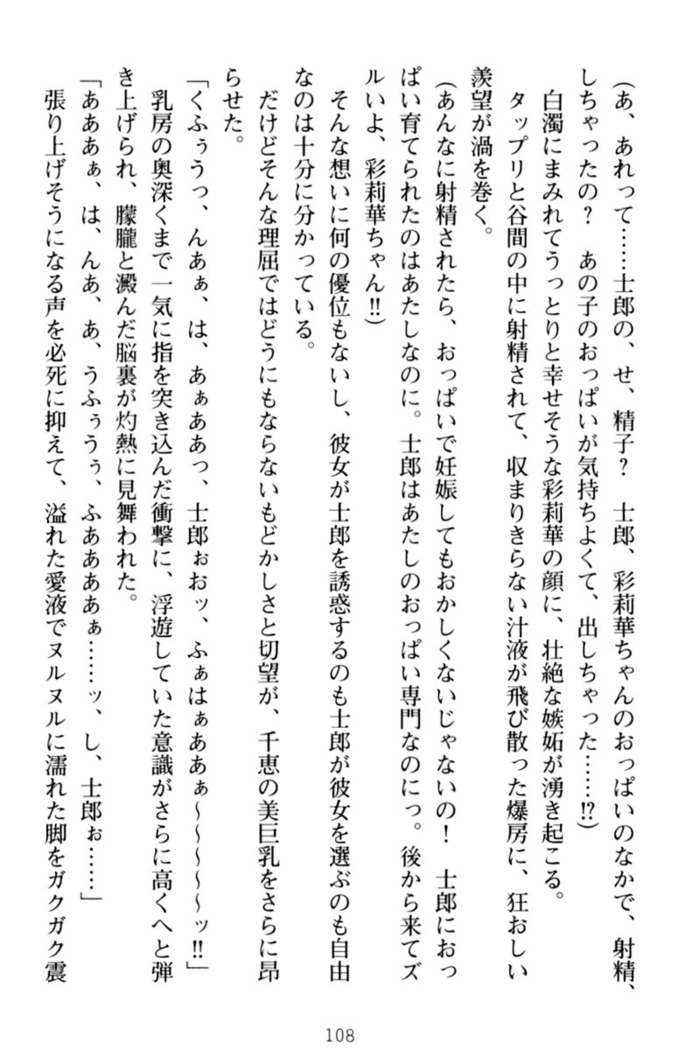 （あ、あれって……士郎の、せ、精子？　士郎、彩莉華ちゃんのおっぱいのなかで、射精、
しちゃったの？　あの子のおっぱいが気持ちよくて、出しちゃった……!?）
白濁にまみれてうっとりと幸せそうな彩莉華の顔に、壮絶な嫉妬が湧き起こる。
タップリと谷間の中に射精されて、収まりきらない汁液が飛び散った爆房に、狂おしい
羨望が渦を巻く。
（あんなに射精されたら、おっぱいで妊娠してもおかしくないじゃないの！　士郎におっ
ぱい育てられたのはあたしなのに。士郎はあたしのおっぱい専門なのにっ。後から来てズ
ルいよ、彩莉華ちゃん!!）
そんな想いに何の優位もないし、彼女が士郎を誘惑するのも士郎が彼女を選ぶのも自由
なのは十分に分かっている。
だけどそんな理屈ではどうにもならないもどかしさと切望が、千恵の美巨乳をさらに昂
らせた。
「くふぅうっ、んあぁ、は、あぁああっ、士郎ぉおッ、ふぁはぁああぁ～～～～～ッ!!」
乳房の奥深くまで一気に指を突き込んだ衝撃に、浮遊していた意識がさらに高くへと弾
き上げられ、朦朧と澱んだ脳裏が灼熱に見舞われた。
「あああぁ、は、んあ、あ、うふぅうぅ、ふああああぁ……ッ、し、士郎ぉ……」
張り上げそうになる声を必死に抑えて、溢れた愛液でヌルヌルに濡れた脚をガクガク震
108